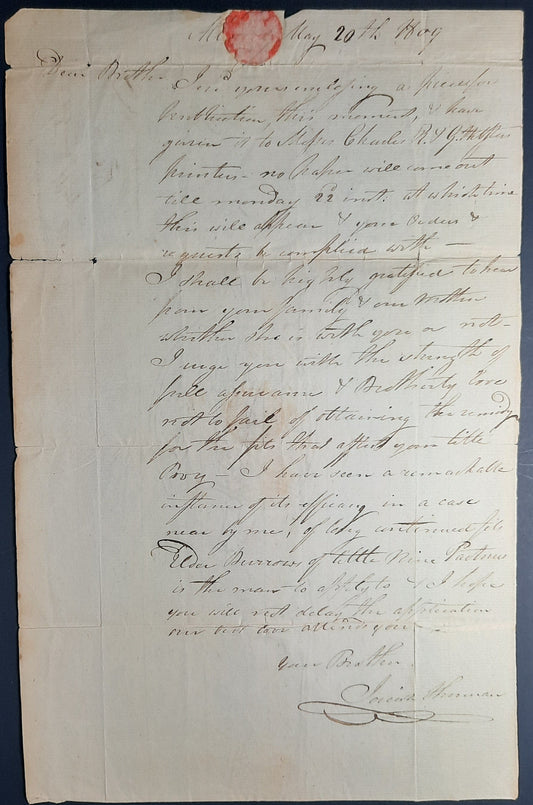 May 20th 1809
Dear Brother
I rec'd yours enclosing a piece for
Publication, this moment, & have
given it to Messrs Charles R. & G.
printers - no paper will come out
till monday 22d inst. at which time
this will appear & your orders &
requests be complied with —
I shall be highly gratified to hear
from your family & our Mother
whether she is with you or not -
I urge you with the strength of
full assurance & Brotherly love
not to fail of obtaining the remedy
for the fits that afflict your little
Boy - I have seen a remarkable
instance of its efficacy in a case
near by me, of long continued fits
Elder Burrows of little Nine Partners
is the man to apply to & I hope
you will not delay the application
our best love attends you —
your Brother
Josiah Sherman